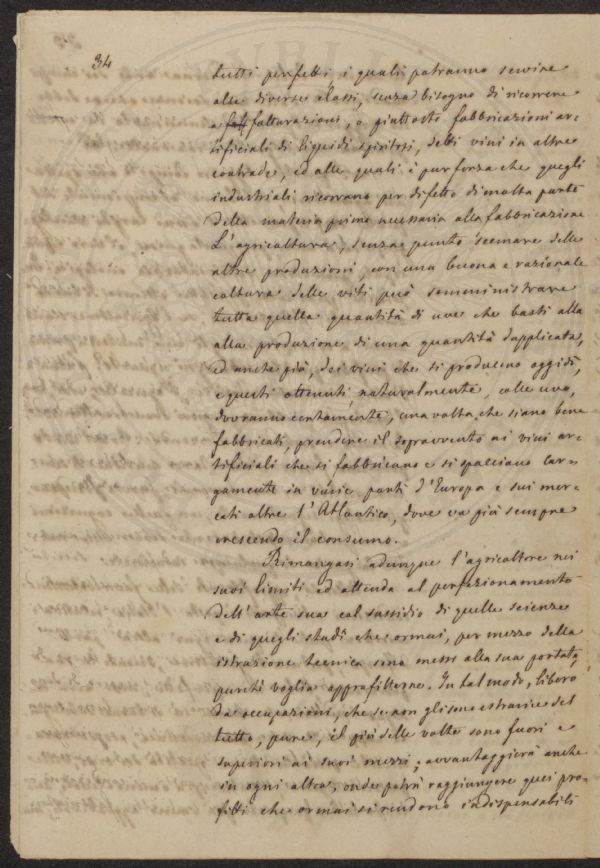 34
tutti perfetti i quali potranno servire
alle diverse classi, senza bisogno di ricorrere
a fatt fatturazioni, o piuttosto fabbricazioni ar=
tificiali di liquidi spiritosi, detti vini in altre
contrade, ed alle quali è pur forza che quegli
industriali ricorrano per difetto di molta parte
della materia prima necessaria alla fabbricazione
L'agricoltura, senza punto scemare delle
altre produzioni, con una buona e razionale
coltura delle viti può somministrare
tutta quella quantità di uve che basti alla
alla produzione di una quantità duplicata,
ed anche più, dei vini che si producono oggidì,
e questi ottenuti, naturalmente, colle uve,
dovranno certamente, una volta, che siano bene
fabbricati, prendere il sopravvento ai vini ar=
tificiali che si fabbricano e si spacciano lar=
gamente in varie parti d'Europa e sui mer=
cati oltre l'Atlantico, dove va più sempre
crescendo il consumo.
Rimangasi adunque l'agricoltore nei
suoi limiti ed attenda al perfezionamento
dell'arte sua col sussidio di quelle scienze
e di quegli studî che ormai, per mezzo della
istruzione tecnica sono messi alla sua portata,
purchè voglia approfittarne. In tal modo, libero
da occupazioni, che se non gli sono estranie del
tutto, pure, il più delle volte sono fuori e
superiori ai suoi mezzi; avvantaggierà anche
in ogni altra, onde potrà raggiungere quei pro=
fitti che ormai si rendono indispensabili